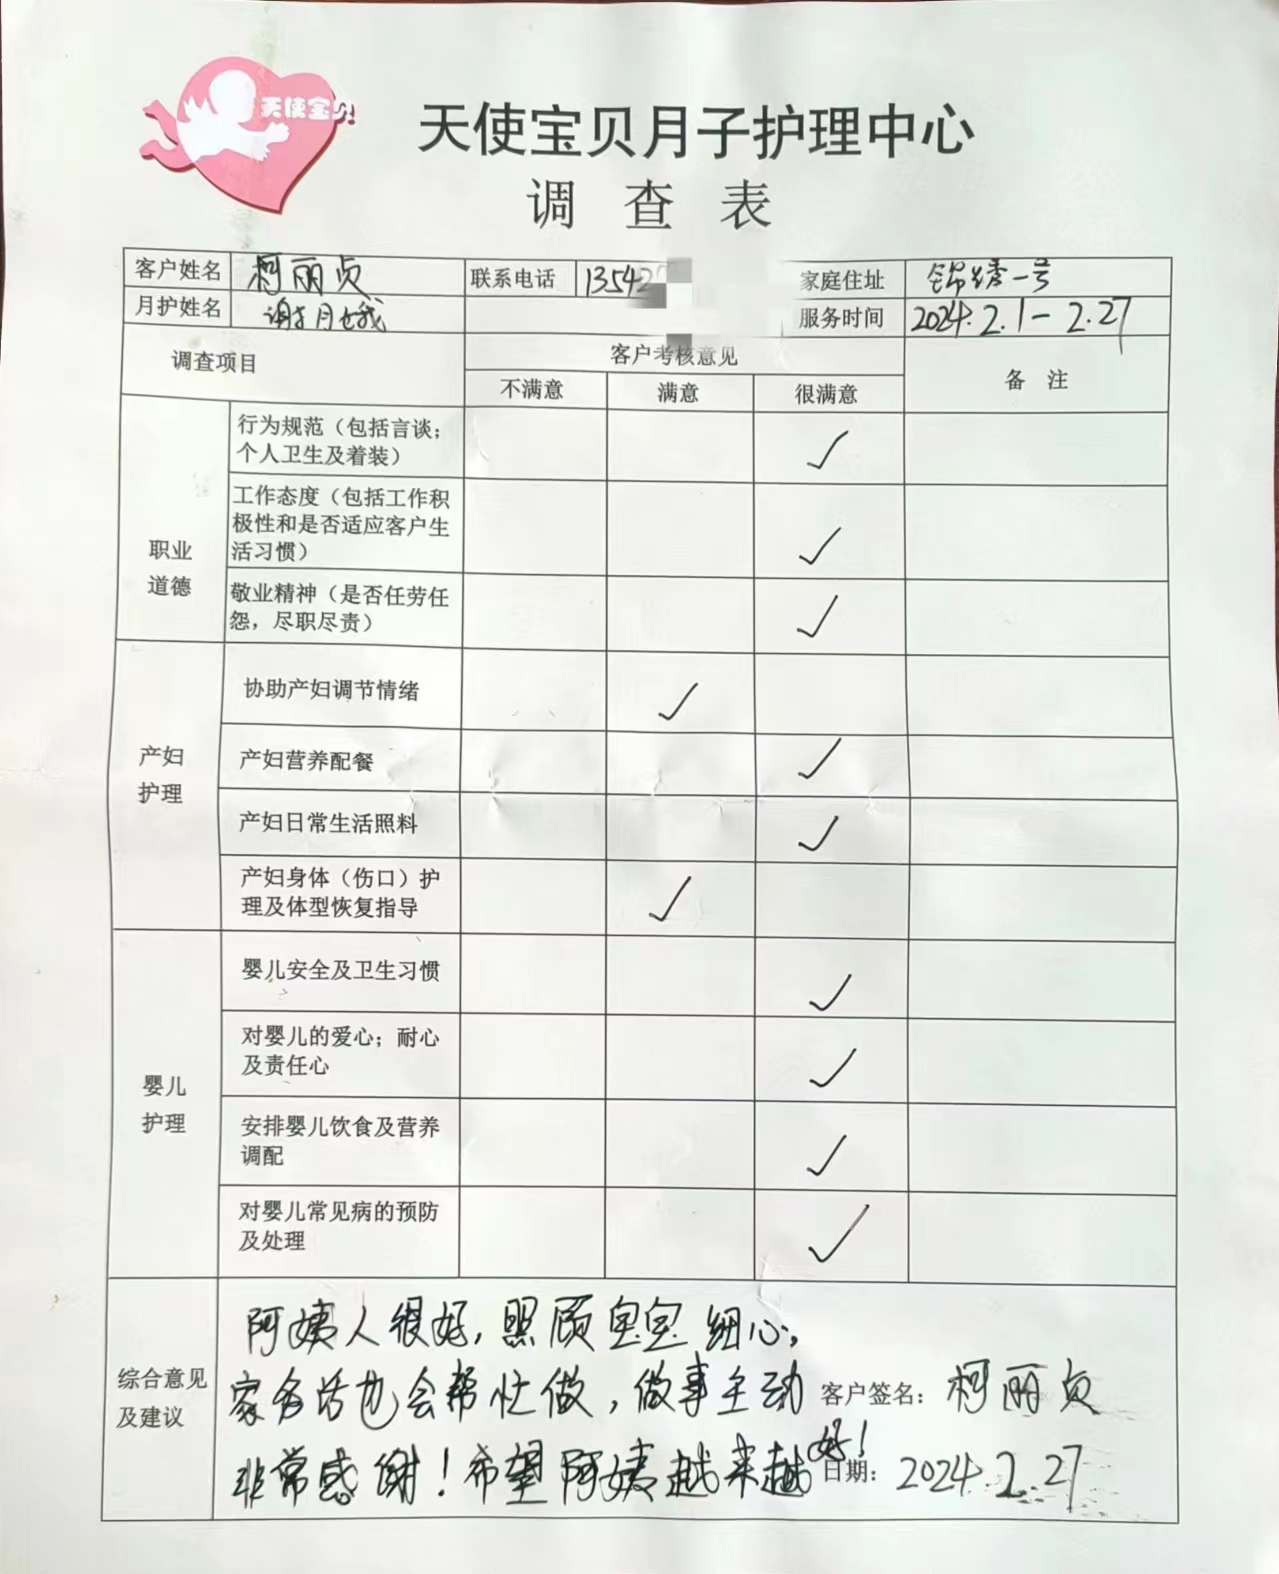 天使宝贝
天使宝贝月子护理中心
调查表
客户姓名 柯丽贞 联系电话 13542 家庭住址 锦绣一号
月护姓名 谢月娥 服务时间 2024.2.1-2.27
调查项目 客户考核意见 备注
不满意 满意 很满意
职业
道德
行为规范（包括言谈；
个人卫生及着装） ✓
工作态度（包括工作积
极性和是否适应客户生
活习惯） ✓
敬业精神（是否任劳任
怨，尽职尽责） ✓
产妇
护理
协助产妇调节情绪 ✓
产妇营养配餐 ✓
产妇日常生活照料 ✓
产妇身体（伤口）护
理及体型恢复指导 ✓
婴儿
护理
婴儿安全及卫生习惯 ✓
对婴儿的爱心；耐心
及责任心 ✓
安排婴儿饮食及营养
调配 ✓
对婴儿常见病的预防
及处理 ✓
综合意见
及建议
阿姨人很好，照顾宝宝细心，
家务活也会帮忙做，做事主动
非常感谢！希望阿姨越来越好！
客户签名：柯丽贞
日期：2024.2.27